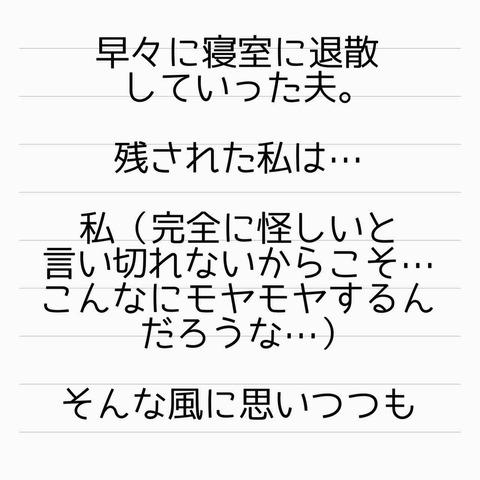 早々に寝室に退散
していった夫。
残された私は…
私（完全に怪しいと
言い切れないからこそ…
こんなにモヤモヤするん
だろうな…）
そんな風に思いつつも